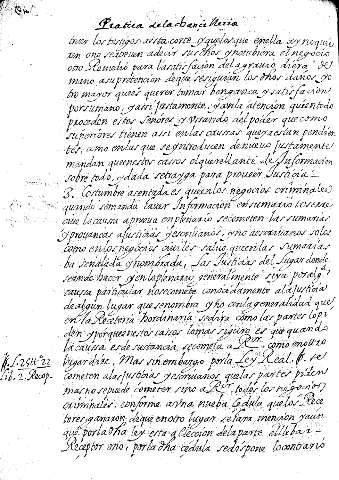 Pratica de la Chancilleria
tener los testigos a esta corte, y que los que en ella ay no quie
ren o no se intenten a decir sus dichos y no tubiera el negocio
otro Remedio para la satisfacion del agravio
mano a su pretencion de que se siguen los dhos daños, y o
tro mayor que es querer tomar benganza y satisfacion
por su mano, y assi justamente, y a vna atencion quien todo
proceden estos señores y Vssando del poder que como
superiores tienen assi en las caussas que ya estan pendien
tes, como en las que se yntroducen de nuevo justamente
mandan que en estos casos el querellante de Informacion
sobre todo, y dada se trayga para proveer Justicia
3. Costumbre asentada es que en los negocios criminales
quando se manda tomar Informacion en sumario
que la caussa a prueva en plenario se cometen las sumarias
y provanças a justicias y escribanos, y no a escribanos solos
como en los negocios civiles salvo que en las sumarias
ba señalada y nombrada, las Justicias del lugar donde
se ande hacer y en lo plenario generalmente
causa particular no se comete conocidamente a la justicia
de algun lugar que se nombra y no con la generalidad que
en la Receptoria hordinaria se dira como las partes lo pi
den y porque en estos casos lo mas siguro es que quando
la caussa es de sustancia, se cometa a R.or como en otro
lugar dixe. Mas sin embargo por la Ley Real se co
meten a las justicias y escribanos que las partes piden
mas no se puede cometer sino a R.or todos los negocios
criminales conforme a vna nueba Cedula que los Recep
tores ganaron, de que en otro lugar se fara mencion y aun
que por la dha ley esta a eleccion de la parte el llebar
Receptor o no, por la dha cedula se dispone lo contrario
L. 25 tt.º 22
Lib. 2. Recop.